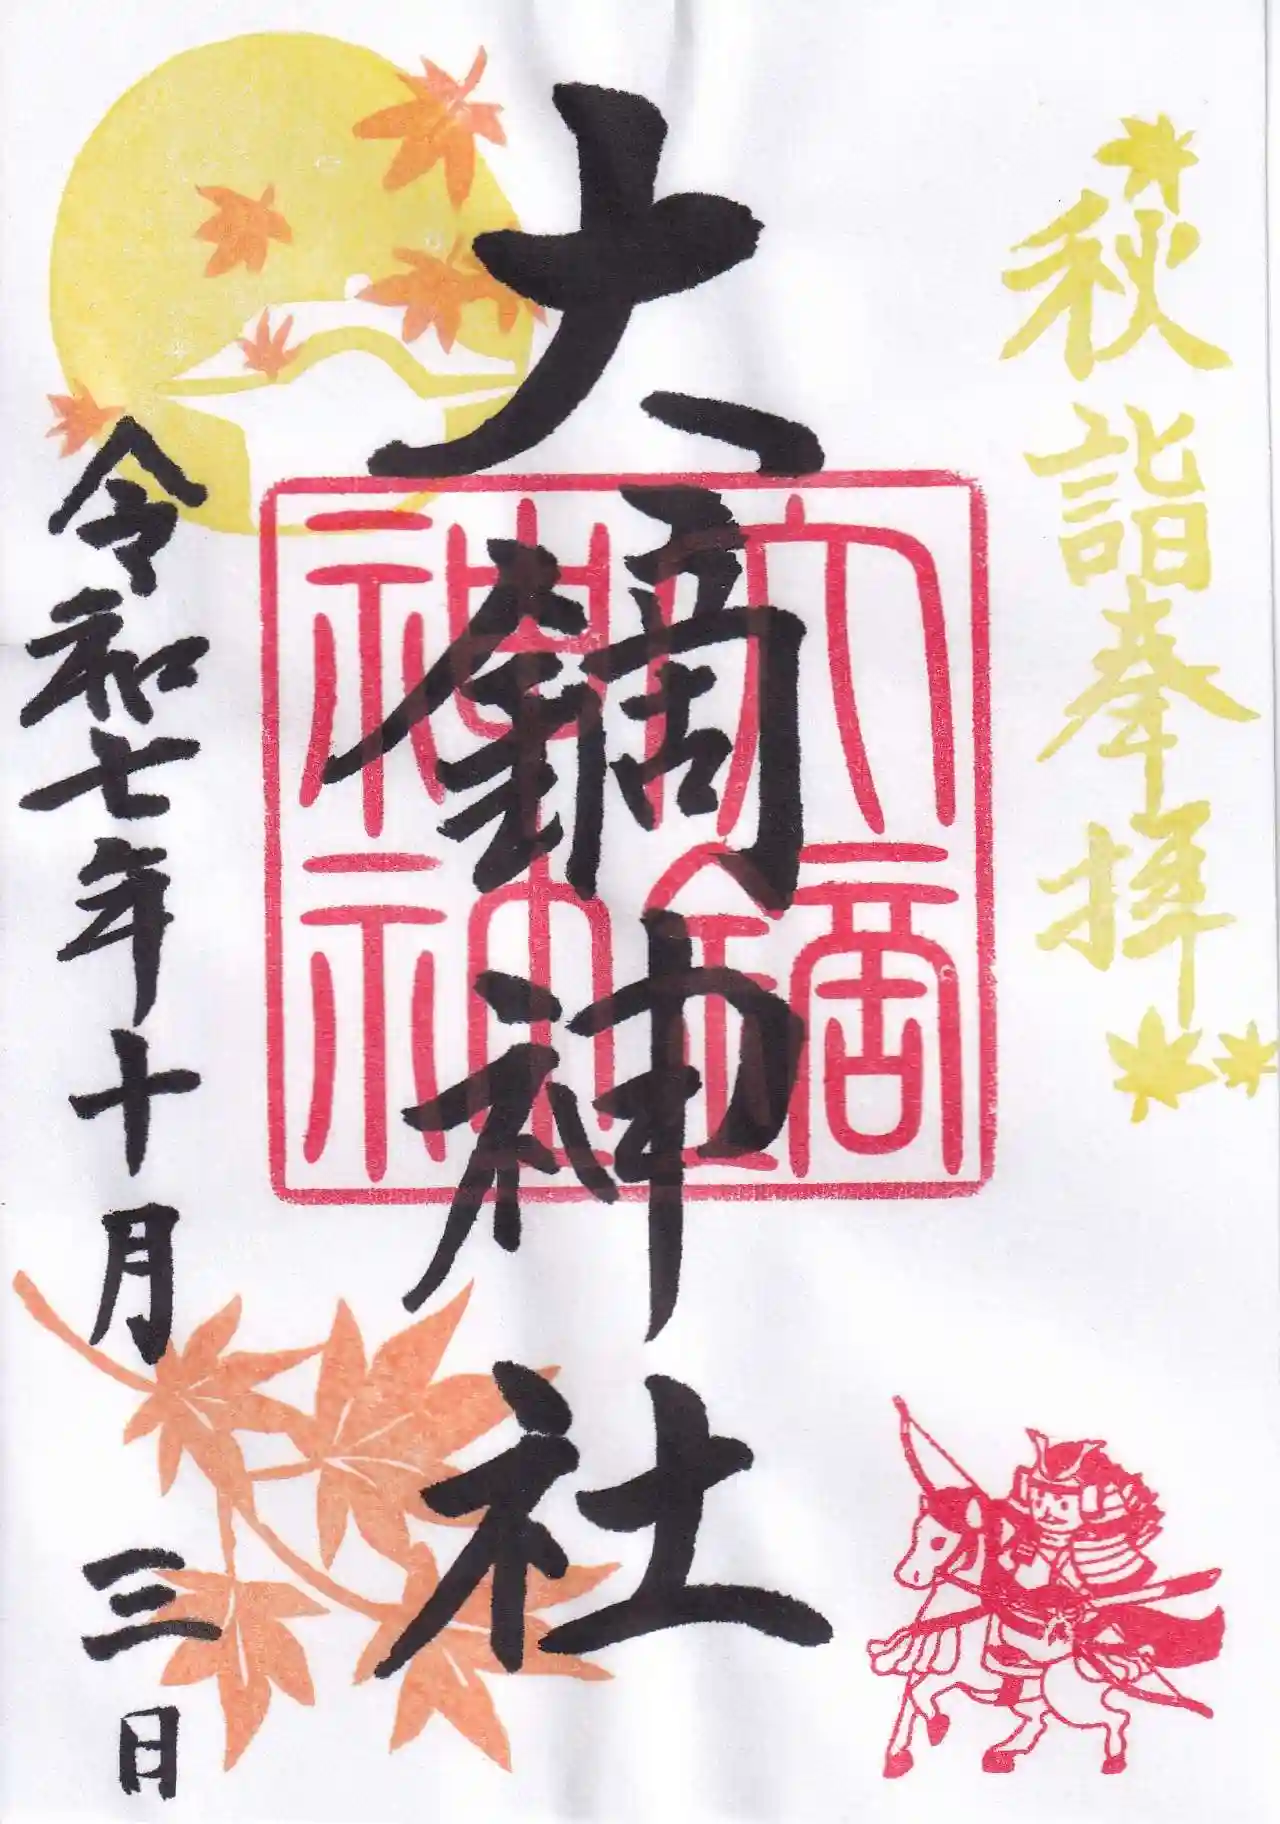 秋詣奉拝
大鏑神社
大鏑神社神
令和七年十月三日